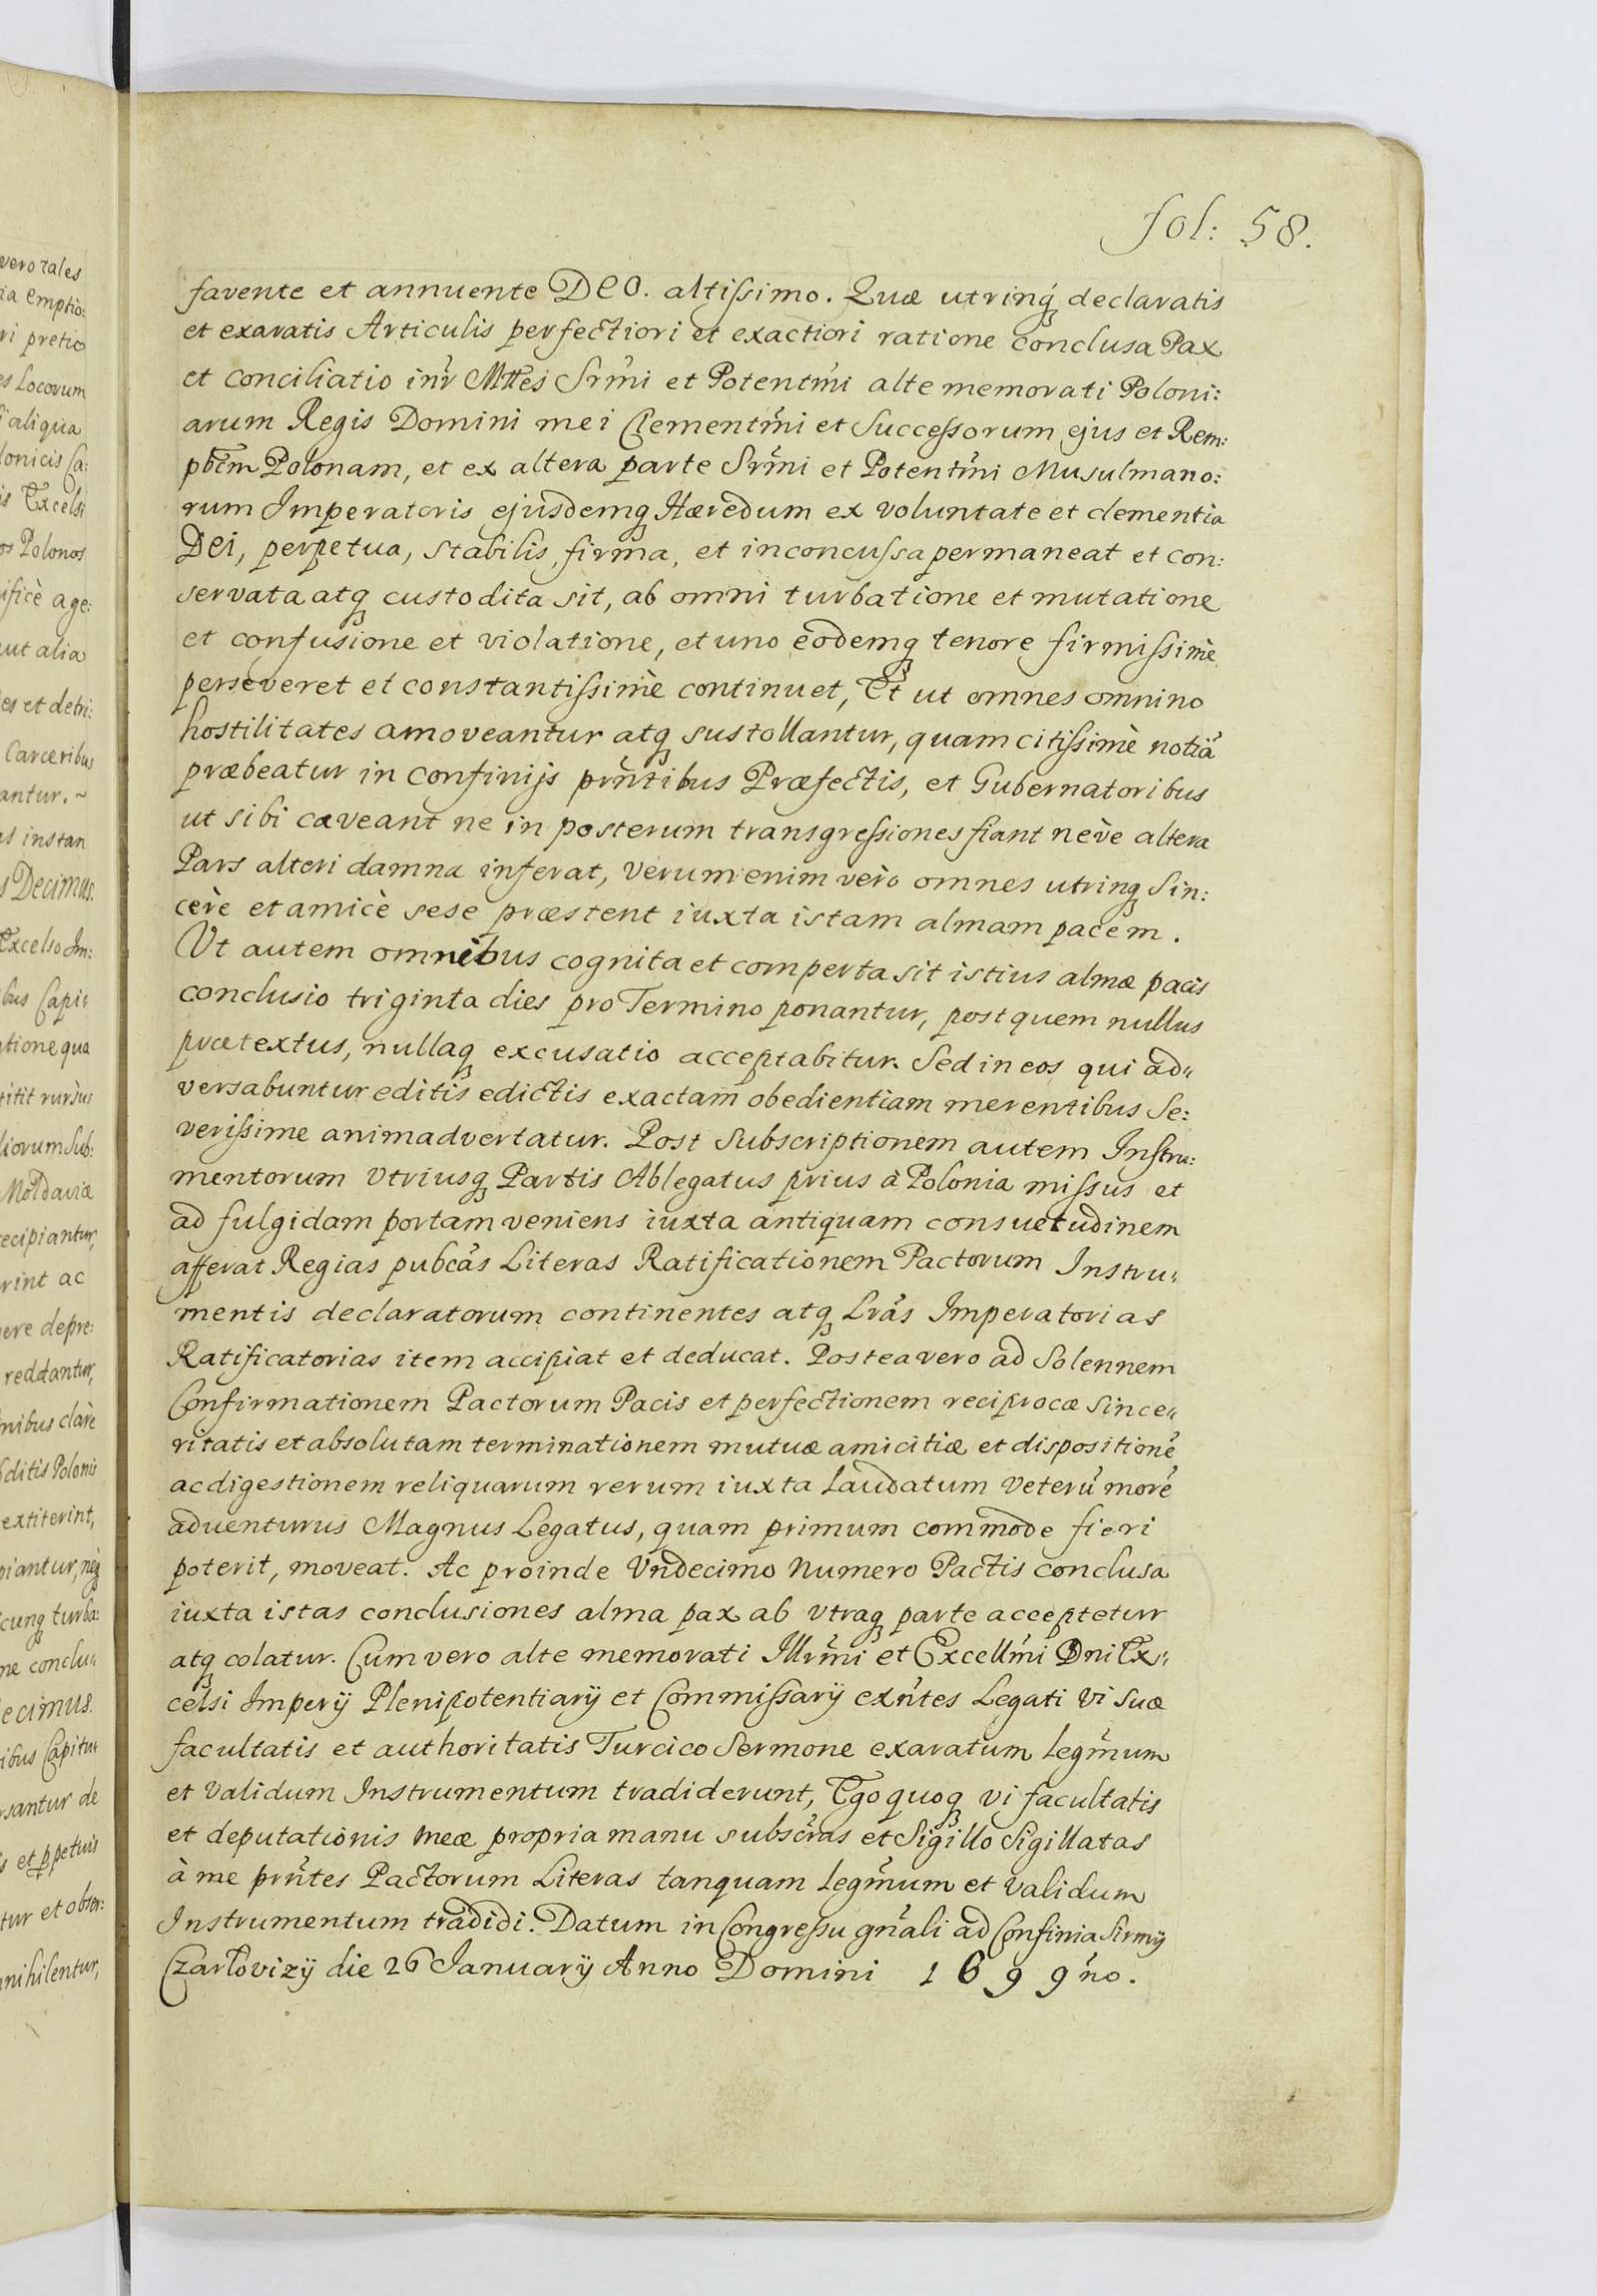 fol: 58.
favente et annuente DEO. altissimo. Quæ utrinq́ declaratis
et exaratis Articulis perfectiori et exactiori ratione conclusa Pax
et conciliatio intr̃ Mttes Srm̃i et Potentm̃i alte memorati Poloni:
arum Regis Domini mei Clementm̃i et Successorum ejus et Rem:
pbc̃m Polonam, et ex altera parte Srm̃i et Potentm̃i Musulmano:
rum Imperatoris ejusdemq Hæredum ex voluntate et clementia
Dei, perpetua, stabilis, firma, et inconcussa permaneat et con:
servata atq custodita sit, ab omni turbatione et mutatione
et confusione et violatione, et uno eodemq tenore firmissimè
perseveret et constantissimè continuet, Et ut omnes omnino
hostilitates amoveantur atq sustollantur, quam citissimè notiã
præbeatur in confinijs prñtibus Præfectis, et Gubernatoribus
ut sibi caveant ne in posterum transgressiones fiant nève altera
Pars alteri damna inferat, verumenim verò omnes utrinq Sin:
cerè et amicè sese præstent iuxta istam almam pacem.
Vt autem omnibus cognita et comperta sit istius almæ pacis
conclusio triginta dies pro Termino ponantur, post quem nullus
prætextus, nullaq excusatio acceptabitur. Sed in eos qui ad„
versabuntur editis edictis exactam obedientiam merentibus Se:
verissime animadvertatur. Post Subscriptionem autem Instru:
mentorum Utriusq Partis Ablegatus prius à Polonia missus et
ad fulgidam portam veniens iuxta antiquam consuetudinem
afferat Regias pubcãs Literas Ratificationem Pactorum Instru„
mentis declaratorum continentes atq Lrãs Imperatorias
Ratificatorias item accipiat et deducat. Postea vero ad Solennem
Confirmationem Pactorum Pacis et perfectionem reciprocæ Since„
ritatis et absolutam terminationem mutuæ amicitiæ et dispositionẽ
ac digestionem reliquarum rerum iuxta laudatum veterũ morẽ
adventurus Magnus Legatus, quam primum commode fieri
poterit, moveat. Ac proinde Vndecimo Numero Pactis conclusa
iuxta istas conclusiones alma pax ab utraq parte acceptetur
atq colatur. Cum vero alte memorati Illrm̃i et Excellm̃i Dni Ex„
celsi Imperÿ Plenipotentiarÿ et Commissarÿ exñtes Legati vi Suæ
facultatis et authoritatis Turcico Sermone exaratum legm̃um
et validum Instrumentum tradiderunt, Ego quoq vi facultatis
et deputationis meæ propria manu subscr̃as et Sigillo Sigillatas
à me prñtes Pactorum Literas tanquam legm̃um et validum
Instrumentum tradidi. Datum in Congressu gñali ad Confinia Sirmÿ
Czarlovizÿ die 26 Januarÿ Anno Domini 1699ño.